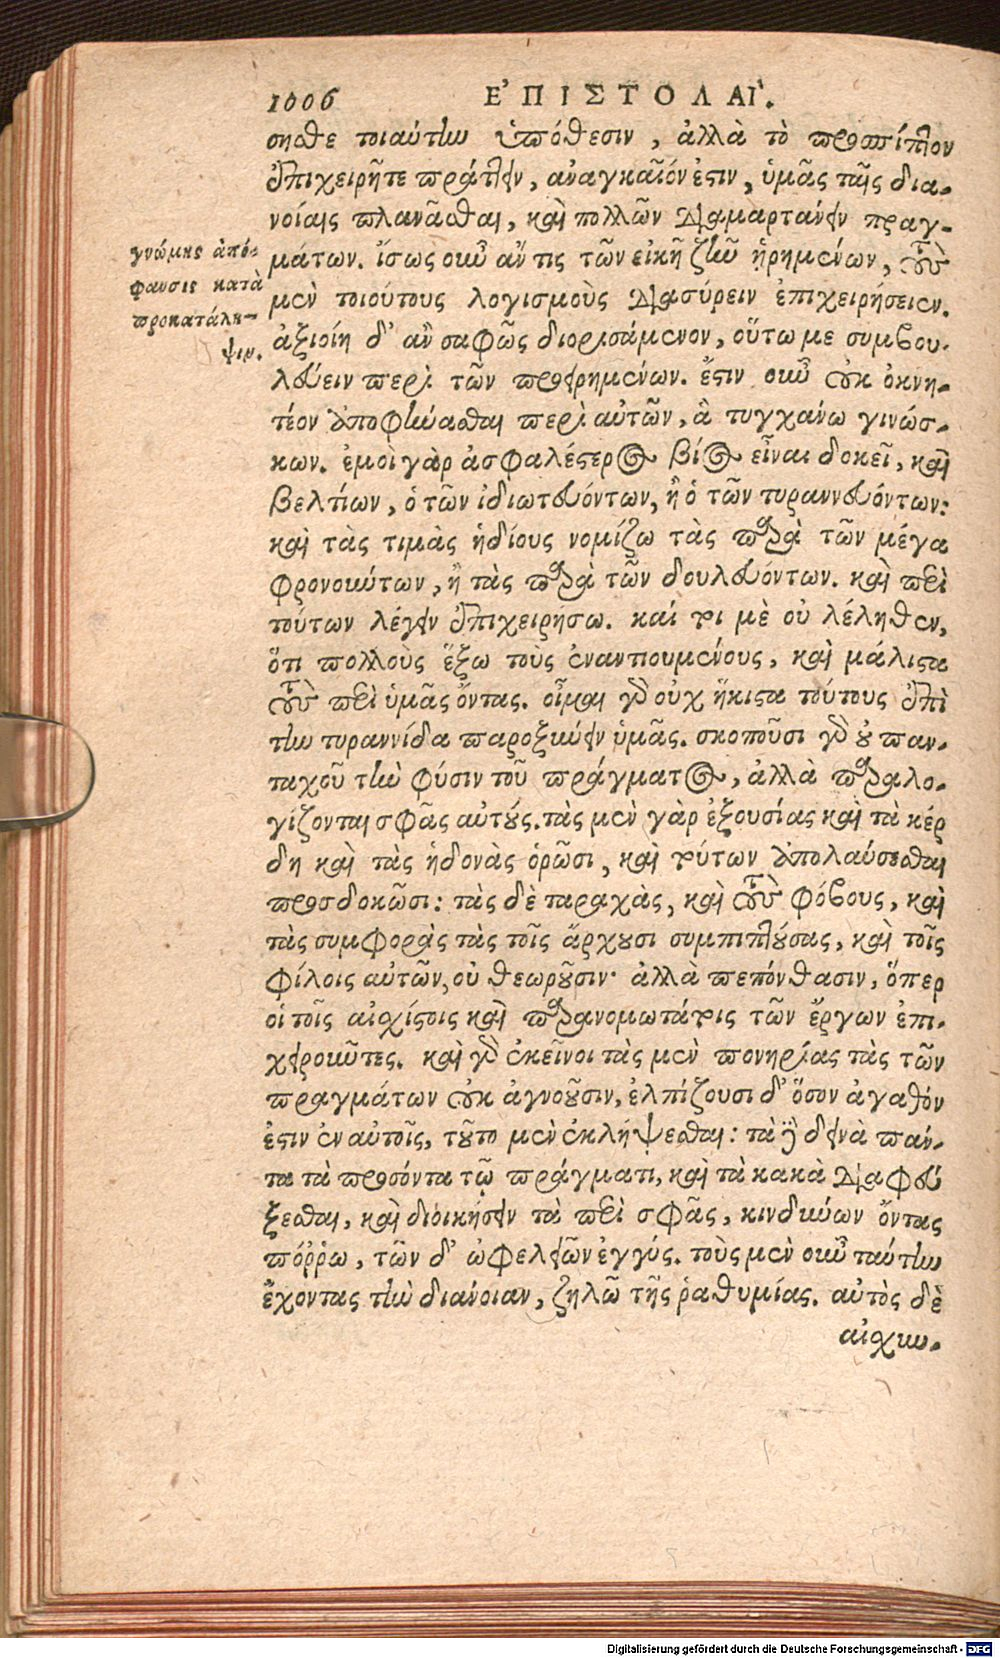 1006 ἘΠΙΣΤΟΛΑΊ.
σησθε τοιαύτην ὑπόθεσιν, ἀλλὰ τὸ προσπίπτον
ἐπιχειρῆτε πράττειν, ἀναγκαῖόν ἐστιν, ὑμᾶς ταῖς δια-
νοίαις πλανᾶσθαι, καὶ πολλῶν διαμαρτάνειν πραγ-
μάτων. ἴσως οὖν ἄν τις τῶν εἰκῆ ζῆν ᾑρημένων, τοὺς
μὲν τοιούτους λογισμοὺς διασύρειν ἐπιχειρήσειεν.
ἀξιοίη δ' ἂν σαφῶς διορισάμενον, οὕτω με συμβου-
λεύειν περὶ τῶν προειρημένων. ἔστιν οὖν οὐκ ὀκνη-
τέον ἀποφήνασθαι περὶ αὐτῶν, ἃ τυγχάνω γινώσ-
κων. ἐμοὶ γὰρ ἀσφαλέστερος βίος εἶναι δοκεῖ, καὶ
βελτίων, ὁ τῶν ἰδιωτευόντων, ἢ ὁ τῶν τυραννευόντων:
καὶ τὰς τιμὰς ἡδίους νομίζω τὰς παρὰ τῶν μέγα
φρονούντων, ἢ τὰς παρὰ τῶν δουλευόντων. καὶ περὶ
τούτων λέγειν ἐπιχειρήσω. καί τοι μὲ οὐ λέληθεν,
ὅτι πολλοὺς ἕξω τοὺς ἐναντιουμένους, καὶ μάλιστα
τοὺς περὶ ὑμᾶς ὄντας. οἶμαι γὰρ οὐχ ἥκιστα τούτους ἐπὶ
τὴν τυραννίδα παροξύνειν ὑμᾶς. σκοποῦσι γὰρ οὐ παν-
ταχοῦ τὴν φύσιν τοῦ πράγματος, ἀλλὰ παραλο-
γίζονται σφᾶς αὐτούς. τὰς μὲν γὰρ ἐξουσίας καὶ τὰ κέρ
δη καὶ τὰς ἡδονὰς ὁρῶσι, καὶ τούτων ἀπολαύσεσθαι
προσδοκῶσι: τὰς δὲ ταραχὰς, καὶ τοὺς φόβους, καὶ
τὰς συμφορὰς τὰς τοῖς ἄρχουσι συμπιπτούσας, καὶ τοῖς
φίλοις αὐτῶν, οὐ θεωροῦσιν· ἀλλὰ πεπόνθασιν, ὅπερ
οἱ τοῖς αἰσχίστοις καὶ παρανομωτάτοις τῶν ἔργων ἐπι-
χειροῦντες. καὶ γὰρ ἐκεῖνοι τὰς μὲν πονηρίας τὰς τῶν
πραγμάτων οὐκ ἀγνοοῦσιν, ἐλπίζουσι δ' ὅσον ἀγαθόν
ἐστιν ἐν αὐτοῖς, τοῦτο μὲν ἐκλήψεσθαι: τὰ δὲ δεινὰ πάν-
τα τὰ προσόντα τῷ πράγματι, καὶ τὰ κακὰ διαφεύ
ξεσθαι, καὶ διοικήσειν τὰ περὶ σφᾶς, κινδύνων ὄντας
πόῤῥω, τῶν δ' ὠφελειῶν ἐγγύς. τοὺς μὲν οὖν ταύτην
ἔχοντας τὴν διάνοιαν, ζηλῶ τῆς ῥαθυμίας. αὐτὸς δὲ
αἰσχυν-
γνώμης ἀπό-
φανσις κατὰ
προκατάλη-
ψιν.
Digitalisierung gefördert durch die Deutsche Forschungsgemeinschaft - DFG